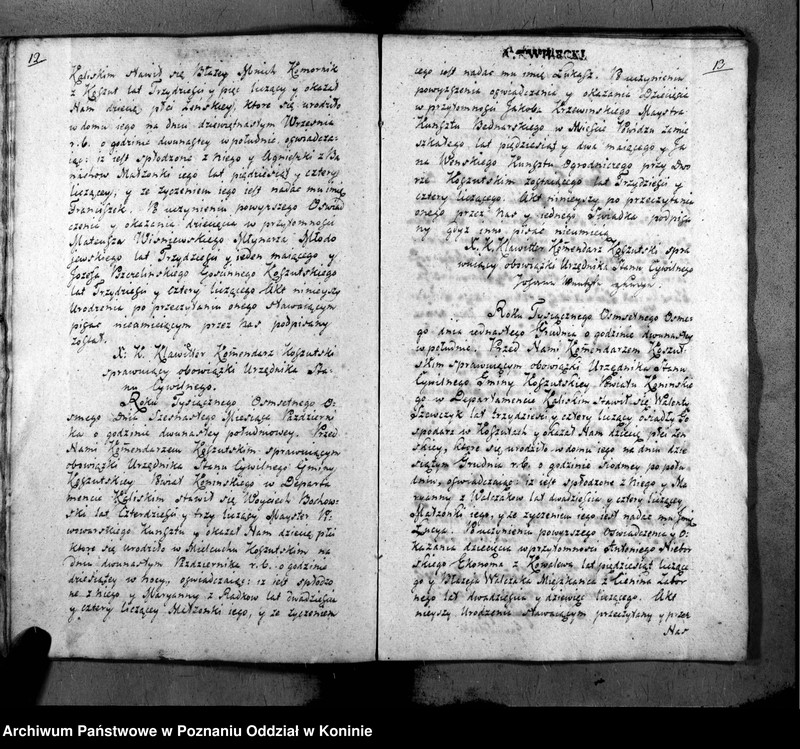 12
Kaliskim stawił się Błażey Mnich Komornik
z Koszut lat Trzydzieści y pięć liczący y okazał
Nam dziecię płci Żenskiey, które się urodziło
w domu iego na dniu dziewiętnastym Września
r. b. o godzinie dwunastey w południe, oświadcza-
iąc: iż iest spłodzone z niego y Agnieszki z
Małżonki iego lat pięćdziesiąt y cztery
liczącey, y że życzeniem iego iest nadać mu imię
Franciszek. Po uczynieniu powyższego Oświad-
czenia y okazaniu dziecięcia w przytomności
Mateusza Wiśniewskiego Młynarza Młodo
jewskiego lat Trzydzieści y ieden maiącego y
Jozefa Goscinnego Koszutskiego
lat Trzydzieści y cztery liczącego Akt ninieyszy
Urodzenia po przeczytaniu onego stawaiącym
pisać nieumieiącym przez Nas podpisany
został.
X. K. Klawitter Komendarz Koszutski
sprawuiący obowiązki Urzędnika Sta-
nu Cywilnego.
Roku Tysiącznego Osmsetnego O-
smego Dnia Szesnastego Miesiąca Pazdzierni-
ka o godzinie dwunastey południowey. Przed
Nami Komendarzem Koszutskim sprawuiącym
obowiązki Urzędnika Stanu Cywilnego Gminy
Koszutskiey Powiat Koninskiego w Departa-
mencie Kaliskim stawił się Woyciech Bochow-
ski lat Czterdzieści y trzy liczący Mayster Pi-
wowarskiego Kunsztu y okazał Nam dziecię płci
które się urodziło w Koszutskim na
dniu dwunastym Pazdziernika r. b. o godzinie
dziesiątey w nocy, oświadczaiąc: iż iest spłodzo-
ne z niego y Maryanny z Radkow lat dwadzieścia
y cztery liczącey Małżonki iego, y że życzeniem
A. ZWPIECKI.
13
iego iest nadać mu imię Łukasz. Po uczynieniu
powyższego oświadczenia y okazaniu Dziecięcia
w przytomności Jakoba Krzewinskiego Maystra
Kunsztu Bednarskiego w Mieście Powidzu zamie
szkałego lat pięćdziesiąt y dwa maiącego y Ja
na Wenskiego Kunsztu Ogrodniczego przy Dwo
rze Koszutskim zostaiącego lat Trzydzieści y
cztery liczącego. Akt ninieyszy po przeczytaniu
onego przez Nas y iednego Swiadka podpisa
ny gdyż inni pisać nieumieią
X. K. Klawitter Komendarz Koszutski spra
wuiący obowiązki Urzędnika Stanu Cywilnego
Roku Tysiącznego Osmsetnego Osme-
go dnia iednastego Grudnia o godzinie dwunastey
w południe. Przed Nami Komendarzem Koszut-
skim sprawuiącym obowiązki Urzędnika Stanu
Cywilnego Gminy Koszutskiey Powiatu Koninskie
go w Departamencie Kaliskim stawił się Walenty
Szewczyk lat trzydzieści y cztery liczący osiadły Go
spodarz w Koszutach y okazał Nam dziecię płci Żen
skiey, które się urodziło w domu iego na dniu dzie
siątym Grudnia r. b. o godzinie siodmey po połu
dniu, oświadczaiąc: iż iest spłodzone z niego y Ma
ryanny z Walczakow lat dwadzieścia y cztery liczącey
Małżonki iego, y że życzeniem iego iest nadać mu Imię
Łucya. Po uczynieniu powyższego Oświadczenia y O-
kazania dziecięcia w przytomności Antoniego Niebor
skiego Ekonoma z Kowalewa lat pięćdziesiąt licząc-
go y Błażeja Walczaka Mieszkanca z Cienina Zabor
nego lat dwadzieścia y dziewięć liczącego. Akt
ninieyszy Urodzenia stawaiącym przeczytany y przez
Nas
Archiwum Państwowe w Poznaniu Oddział w Koninie